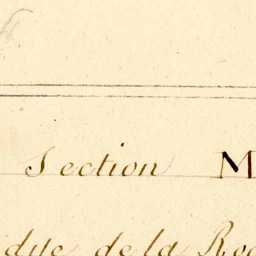 Section M
dite de la